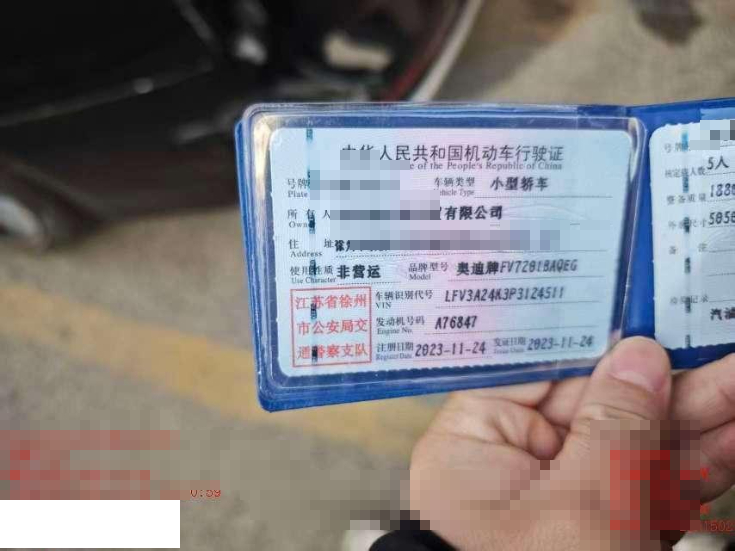 中华人民共和国机动车行驶证
of the People's Republic of China
号牌
Plate
车辆类型 小型轿车
Vehicle Type
所有人 有限公司
Owne
住 址
Address
使用性质 非营运
Use Character
品牌型号 奥迪牌FV7201BAQEG
Model
江苏省徐州
市公安局交
通警察支队
车辆识别代号 LFV3A24K3P3124511
VIN
发动机号码 A76847
Engine No.
注册日期 2023-11-24
Register Date
发证日期 2023-11-24
Issue Date
号牌
核定载人数 5人
整备质量 188
外廓尺寸 5050
备 注
检验记录
汽油
0:59